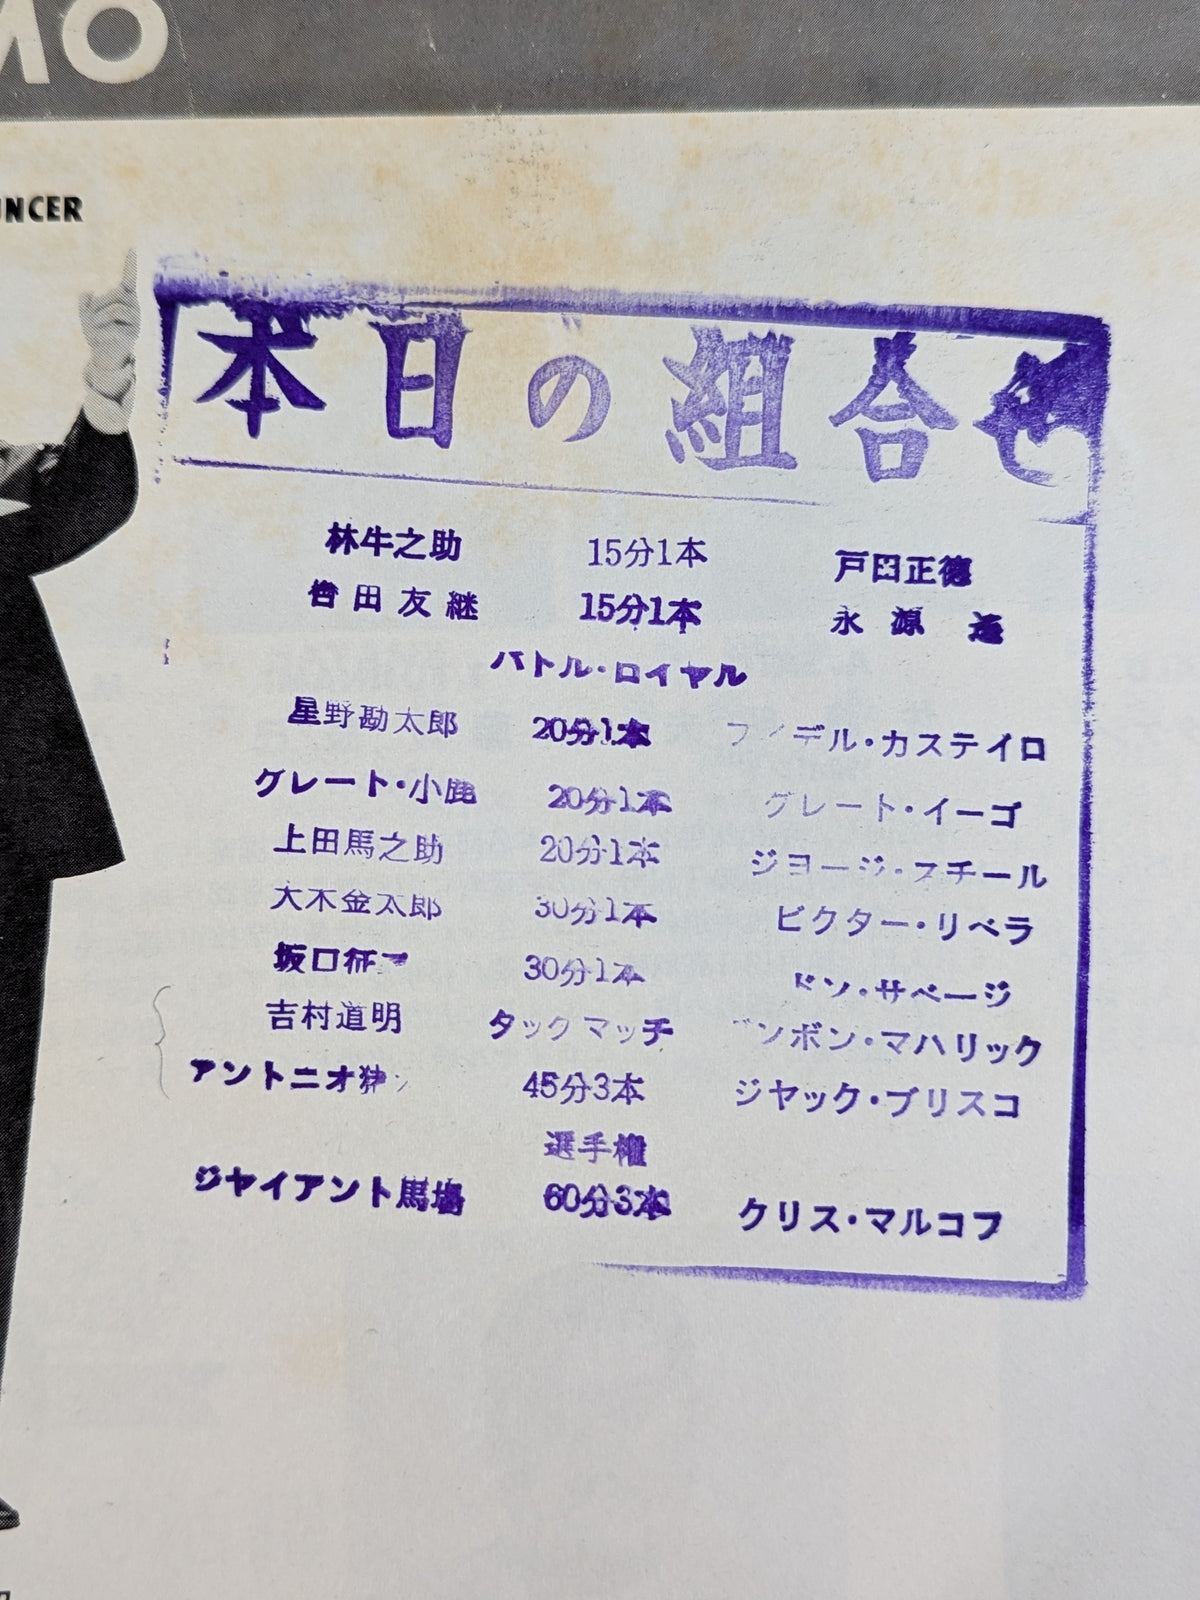 MO
NCER
本日の組合せ
林牛之助 15分1本 戸田正徳
吉田友継 15分1本 永源遙
バトル・ロイヤル
星野勘太郎 20分1本 フィデル・カステイロ
グレート・小鹿 20分1本 グレート・イーゴ
上田馬之助 20分1本 ジヨージ・スチール
大木金太郎 30分1本 ビクター・リベラ
坂口征二 30分1本 ドン・サベージ
吉村道明 タッグマッチ ボンボン・マハリック
アントニオ猪 45分3本 ジヤック・ブリスコ
選手権
ジヤイアント馬場 60分3本 クリス・マルコフ